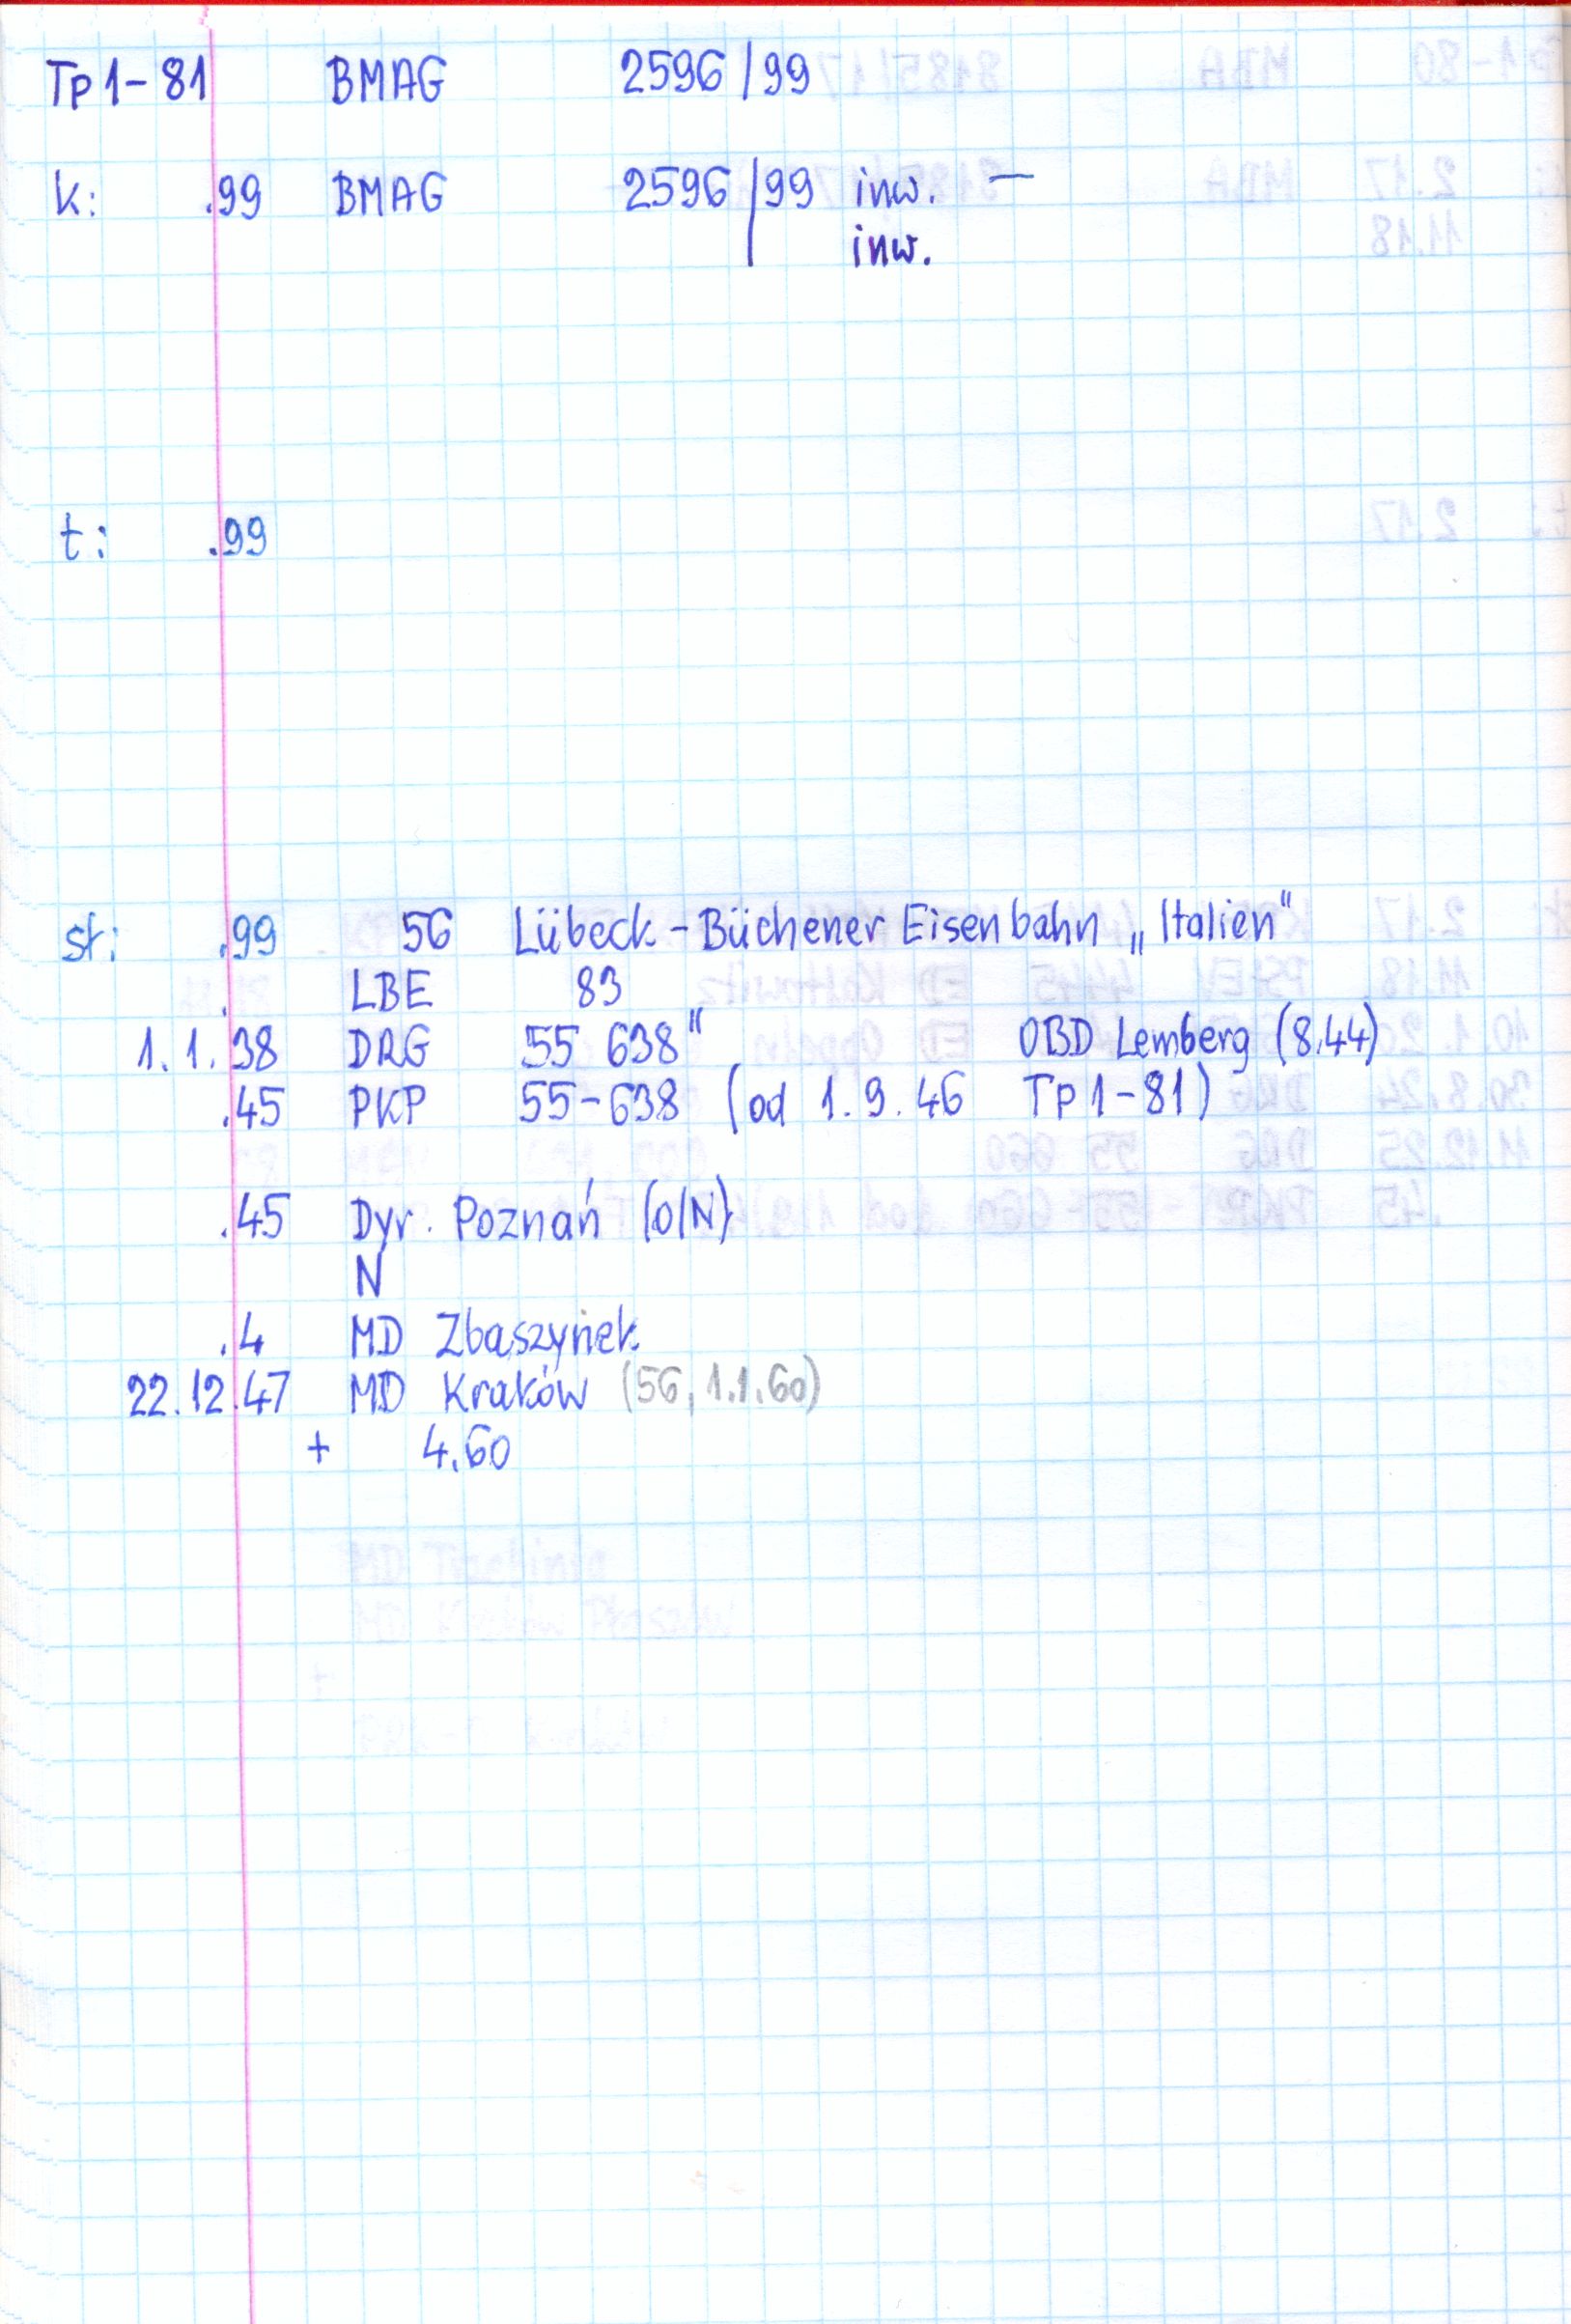 Tp1-81 BMAG 2596/99
k: .99 BMAG 2596/99 inw. —
inw.
t: .99
st: .99 56 Lübeck-Büchener Eisenbahn „Italien"
. LBE 83
1.1.38 DRG 55 638" OBD Lemberg (8.44)
.45 PKP 55-638 (od 1.9.46 Tp1-81)
.45 Dyr. Poznań (O/N)
N
.4 MD Zbaszynek
22.12.47 MD Kraków (56, 1.1.60)
+ 4.60